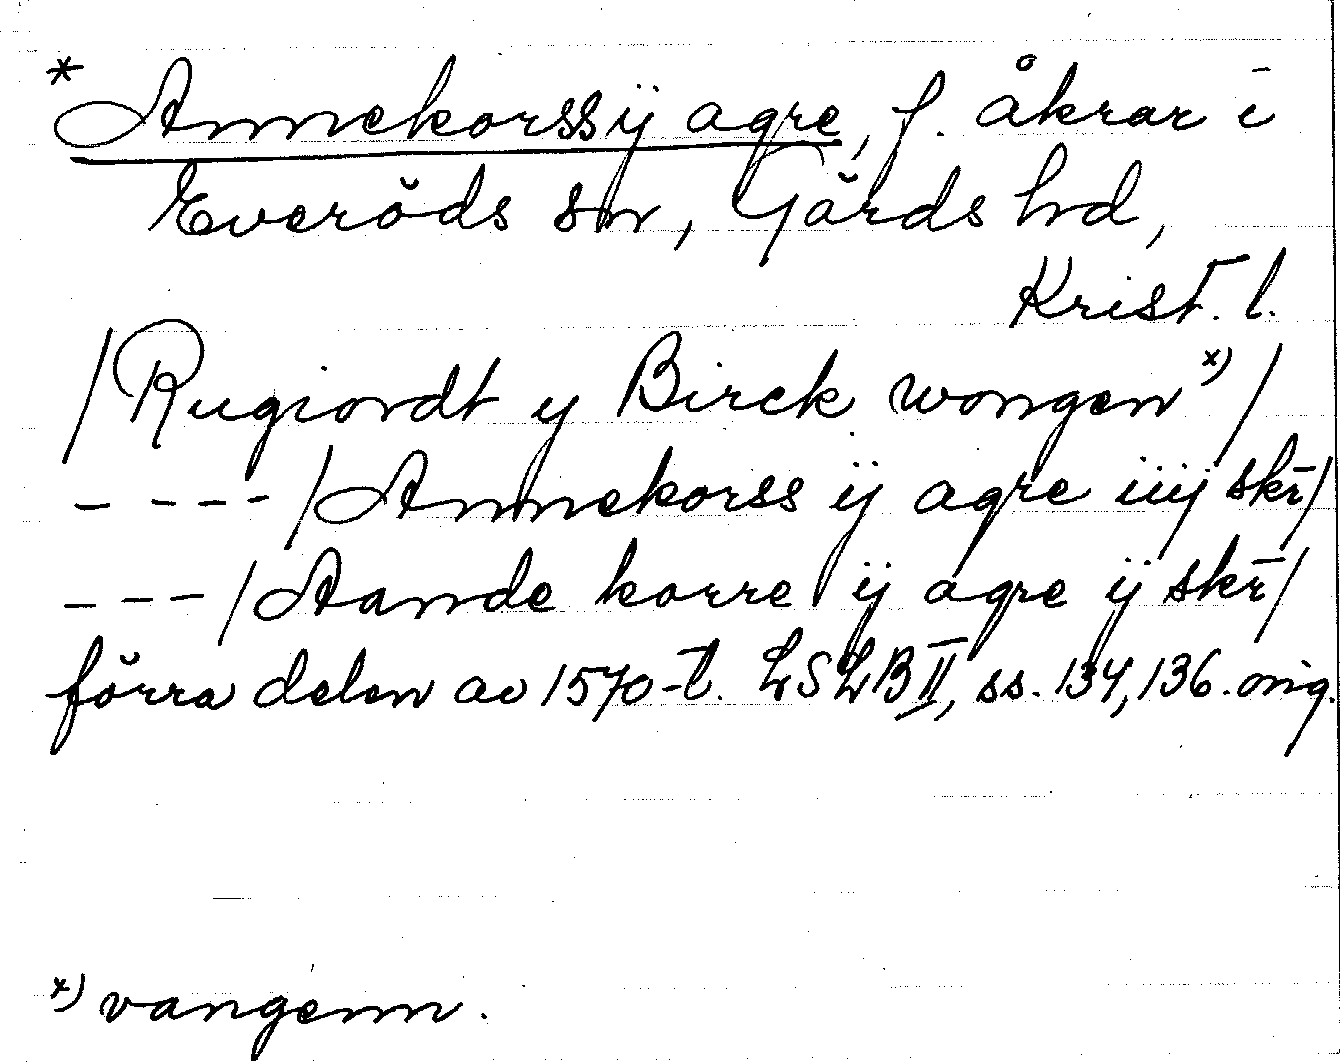 *Annekorss ij agre, f. åkrar i
Everöds sn, Gärds hd,
Krist. l.
/Rugiordt y Birck wongen x)/
- - - - /Annekorss ij agre iiij skr̄/
- - - /Aande korre ij agre ij skr̄/
förra delen av 1570-t. LSLB II, ss. 134, 136. orig.
x) vangenn.